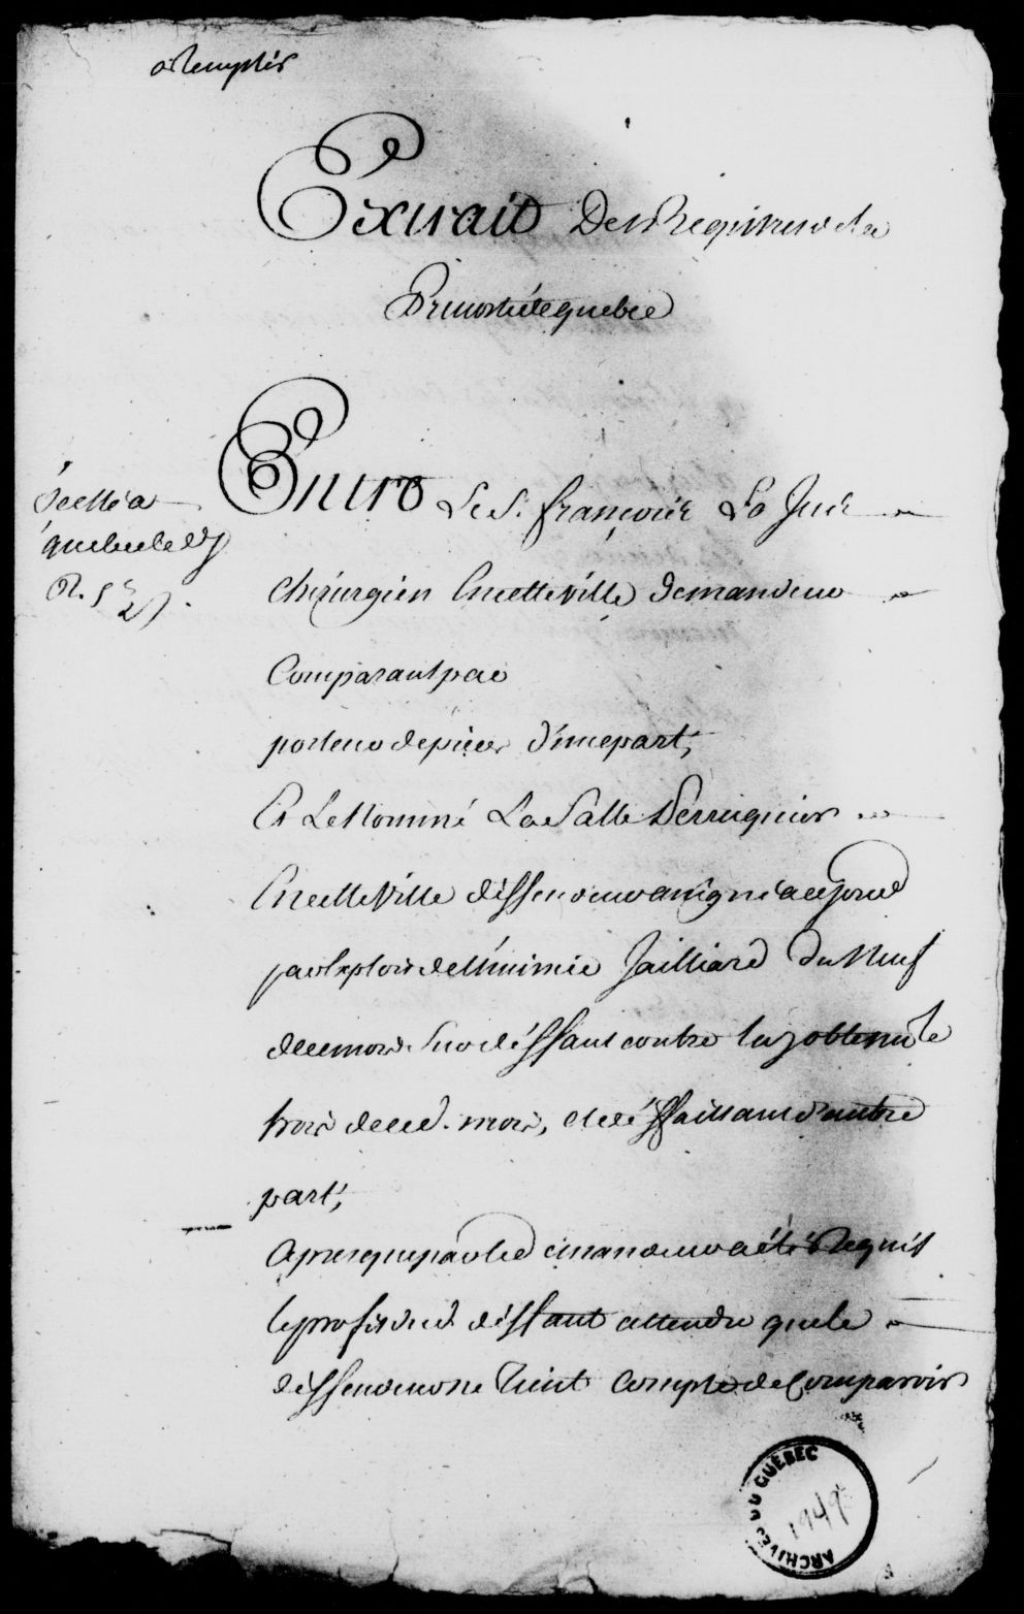 Extrait Des Registres de la
Prevosté de quebec
scellé a
quebec le
R. 5s
Entre Le Sr. françois La Jus
chirurgien En cette Ville demandeur
Comparant par
porteur de pieces d'une part,
Et Le Nommé La Salle Perruquier
En cette Ville deffendeur assigné au Jourd
par Exploit de l'huissier Jailliard Du Neuf
de ce mois Sur déffaut contre luy obtenu le
trois de ce d. mois, et déffaillant d'autre
part,
Apres que par led demandeur a été Requis
le profit du d. deffaut attendu que le
deffendeur ne tient Compte de Comparoir
ARCHIVES DU QUÉBEC